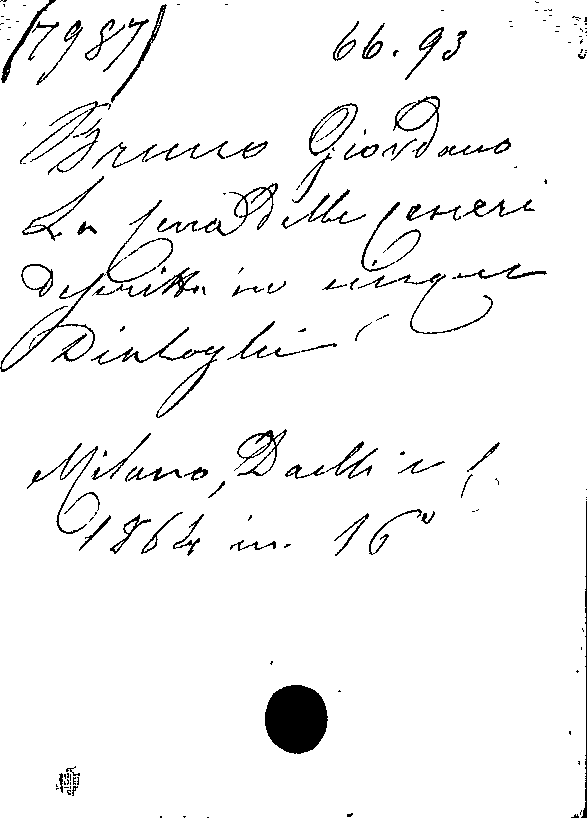 (7987) 66.93
Bruno Giordano
La Cena delle ceneri
descritta in cinque
Dialoghi
Milano, Daelli e C.
1864 in. 16°